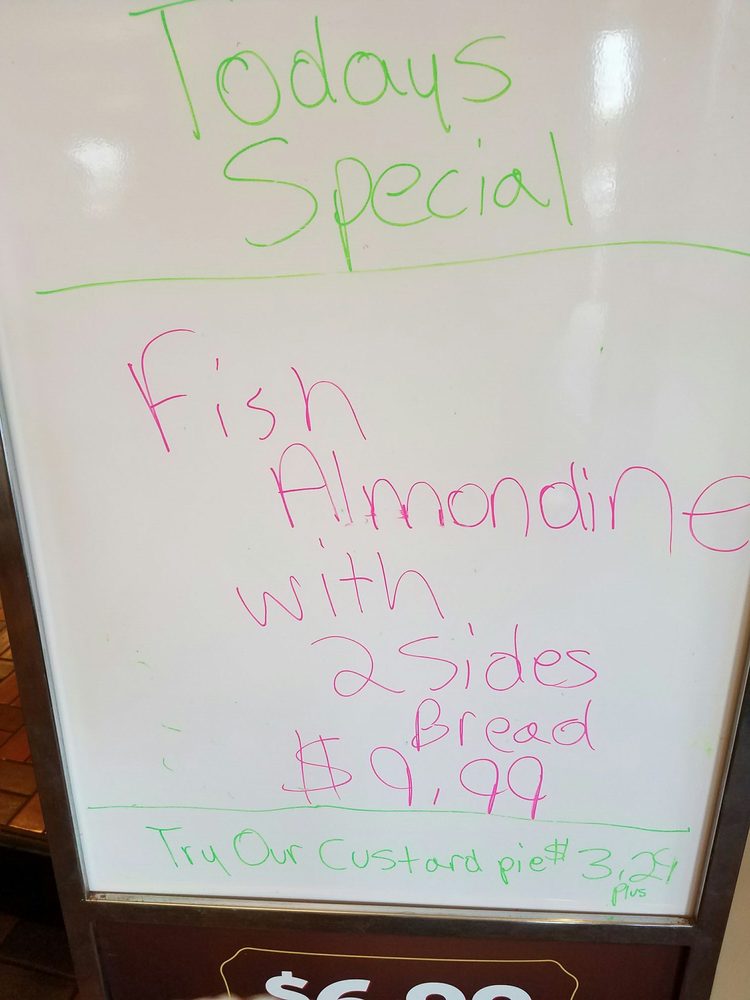 Todays
Special
Fish
Almondine
with
2 Sides
Bread
$9.99
Try Our Custard pie $3.29
plus